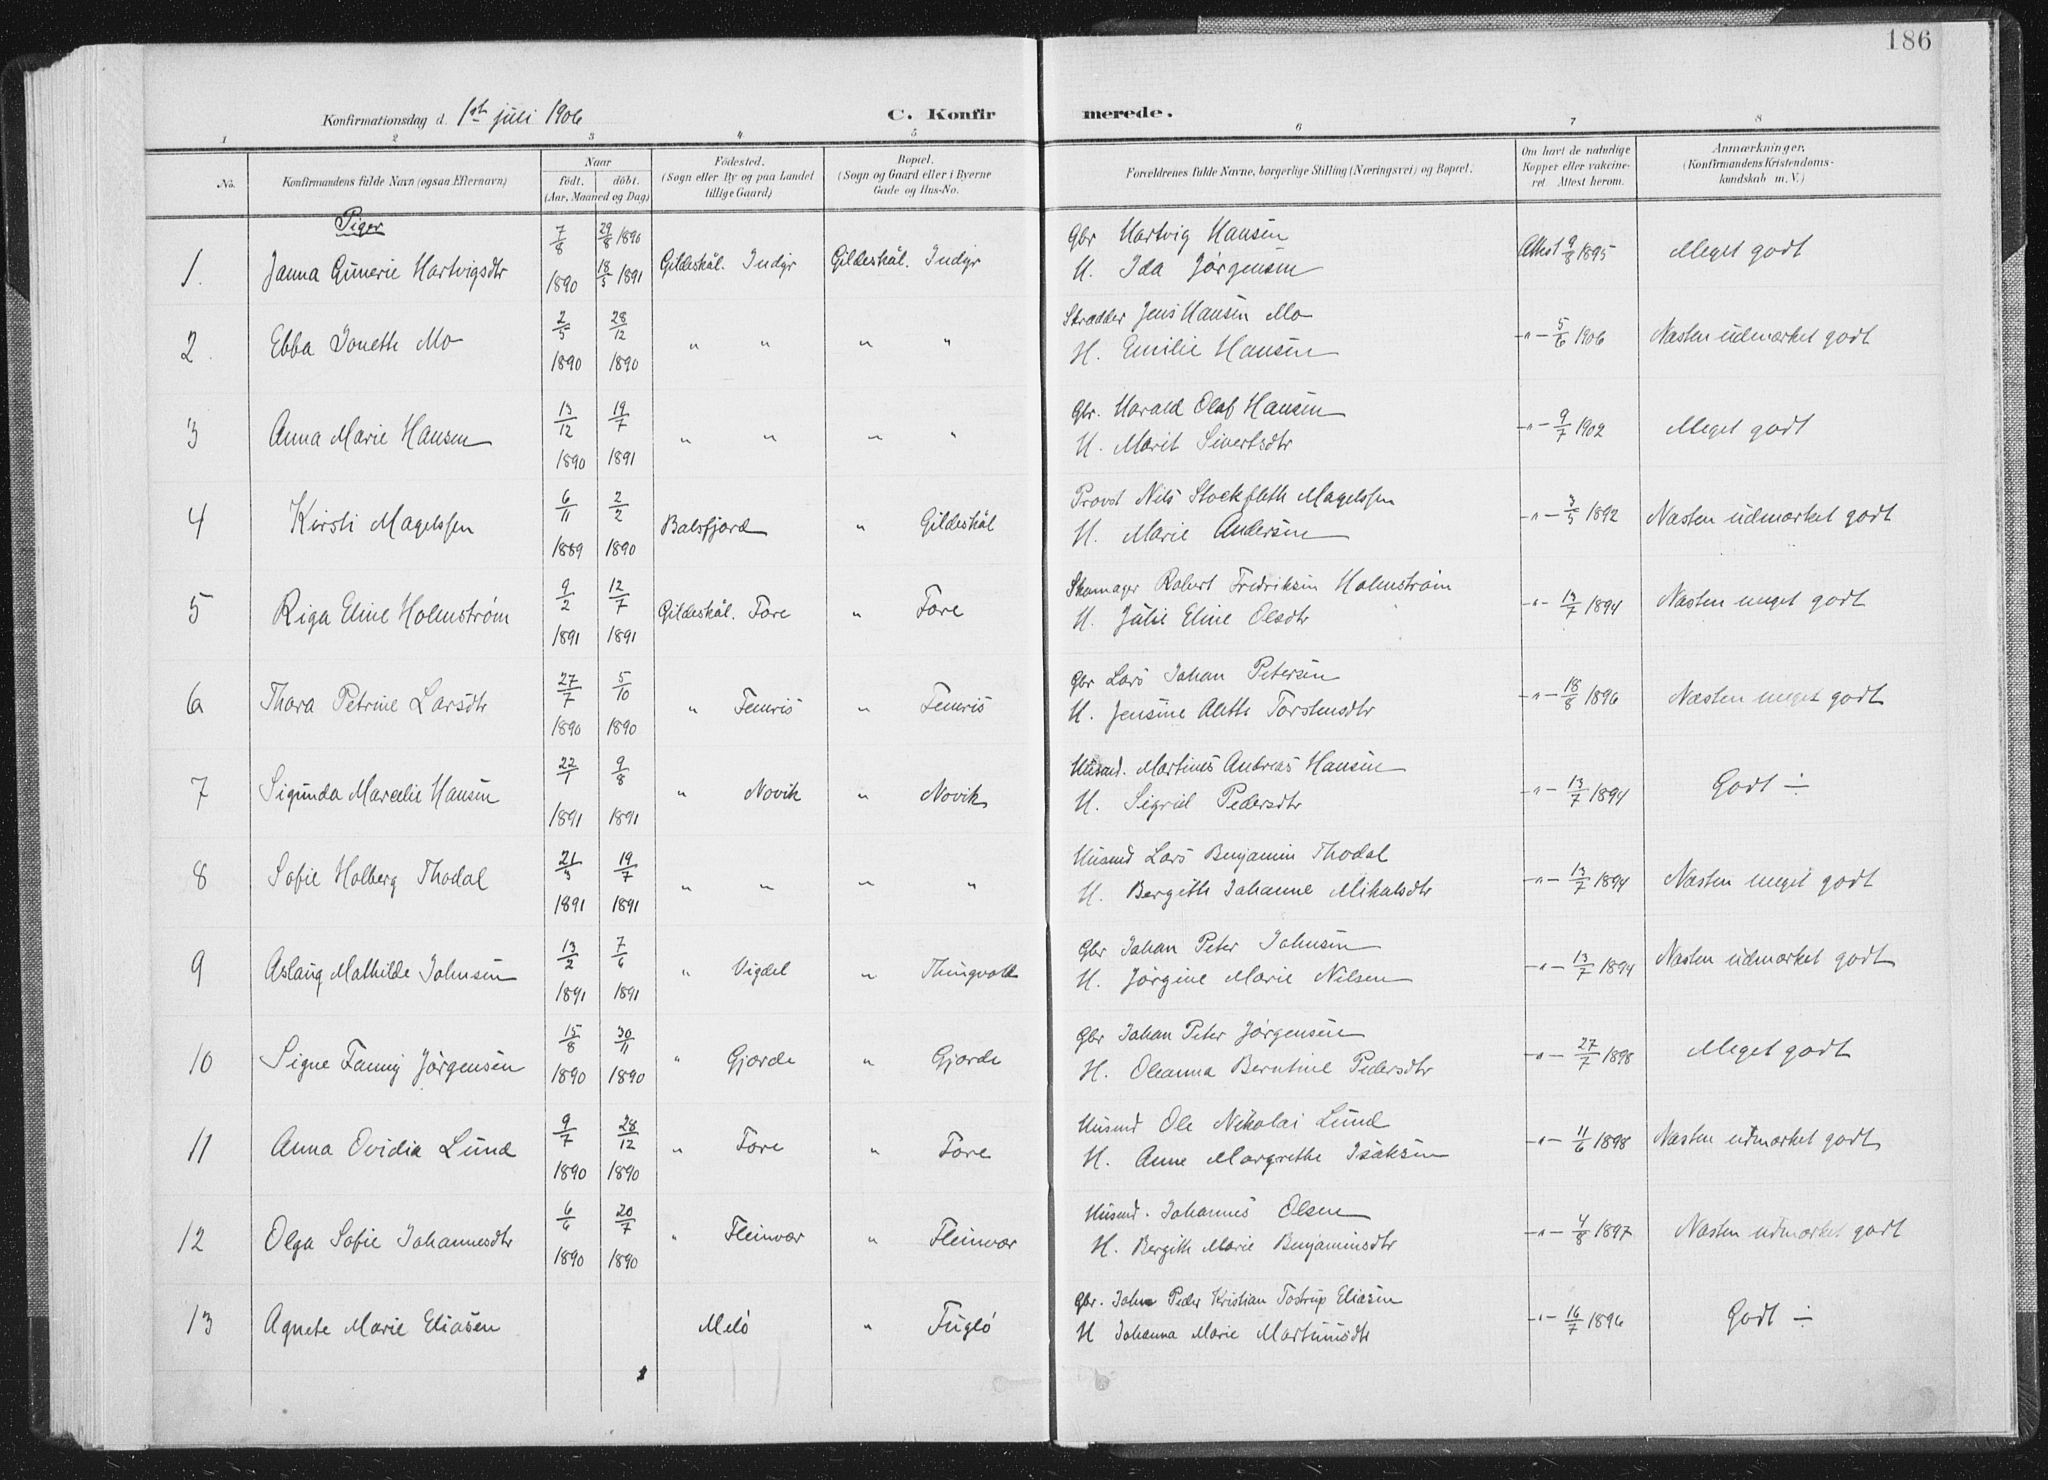 186
Konfirmationsdag d. 1st juli 1906
C. Konfirmerede.
1 2 3 4 5 6 7 8
No. | Konfirmandens fulde Navn (ogsaa Efternavn) | Naar født. døbt. (Aar, Maaned og Dag) | Fødested. (Sogn eller By og paa Landet tillige Gaard) | Bopæl. (Sogn og Gaard eller i Byerne Gade og Hus-No. | Forældrenes fulde Navne, borgerlige Stilling (Næringsvei) og Bopæl. | Om havt de naturlige Kopper eller vakcineret. Attest herom. | Anmærkninger. (Konfirmandens Kristendomskundskab m. V.)
Piger
1. Janna Gunerie Hartvigsdtr | 7/8 1890 | 29/8 1890 18/5 1891 | Gildeskål. Indyr | Gildeskål. Indyr | Gbr Hartvig Hansen | Attest 9/8 1895 | Meget godt
H. Ida Jørgensen
2. Ebba Jonette Mo | 2/5 1890 | 28/12 1890 | " " | " " | Skrædder Jens Hansen Mo | -"- 5/6 1906 | Næsten udmærket godt
H. Emilie Hansen
3 Anna Marie Hansen | 13/12 1890 | 19/7 1891 | " " | " " | Gbr. Harald Olaf Hansen | -"- 9/7 1902 | Meget godt
H. Marit Sivertsdtr
4 Kirsti Magelssen | 6/11 1889 | 2/2 1890 | Balsfjord | " Gildeskål | Provst Nils Stockfleth Magelssen | -"- 3/5 1892 | Næsten udmærket godt
H. Marie Andersen
5 Riga Eline Holmstrøm | 9/2 1891 | 12/7 1891 | Gildeskål. Fore | " Fore | Skomager Robert Fredriksen Holmstrøm | -"- 13/7 1894 | Næsten meget godt
H. Julie Eline Olsdtr
6 Thora Petrine Larsdtr | 27/7 1890 | 5/10 1890 | " Femris | " Femris | Gbr Lars Johan Petersen | -"- 18/8 1896 | Næsten meget godt
H. Jensine Aleth Torstensdtr
7 Sigunda Marcelie Hansen | 22/1 1891 | 9/8 1891 | " Novik | " Novik | Husmd. Martines Andreas Hansen | -"- 13/7 1894 | Godt ÷
H. Sigriel Pedersdtr
8 Sofie Holberg Thodal | 21/3 1891 | 19/7 1891 | " " | " " | Husmd Lars Benjamin Thodal | -"- 13/7 1894 | Næsten meget godt
H. Bergithe Johanne Mikalsdtr
9 Aslaug Mathilde Johnsen | 13/2 1891 | 7/6 1891 | " Vigdel | " Thingvoll | Gbr Johan Peter Johnsen | -"- 13/7 1894 | Næsten udmærket godt
H. Jørgine Marie Nilsen
10 Signe Fanny Jørgensen | 15/8 1890 | 30/11 1890 | " Gjærde | " Gjærde | Gbr Johan Peter Jørgensen | -"- 27/7 1898 | Meget godt
H. Oleanna Berntine Pedersdtr
11 Anna Ovidia Lund | 9/7 1890 | 28/12 1890 | " Fore | " Fore | Husmd Ole Nikolai Lund | -"- 11/6 1898 | Næsten udmærket godt
H. Anne Margrethe Isaksen
12 Olga Sofie Johannesdtr | 6/6 1890 | 20/7 1890 | " Fleinvær | " Fleinvær | Husmd. Johannes Olsen | -"- 4/8 1897 | Næsten udmærket godt
H. Bergith Marie Benjaminsdtr
13 Agnete Marie Eliasen | Melø | " Fuglø | Gbr. Johan Peder Kristian Tostrup Eliasen | -"- 16/7 1896 | Godt ÷
H Johanna Marie Martinusdtr